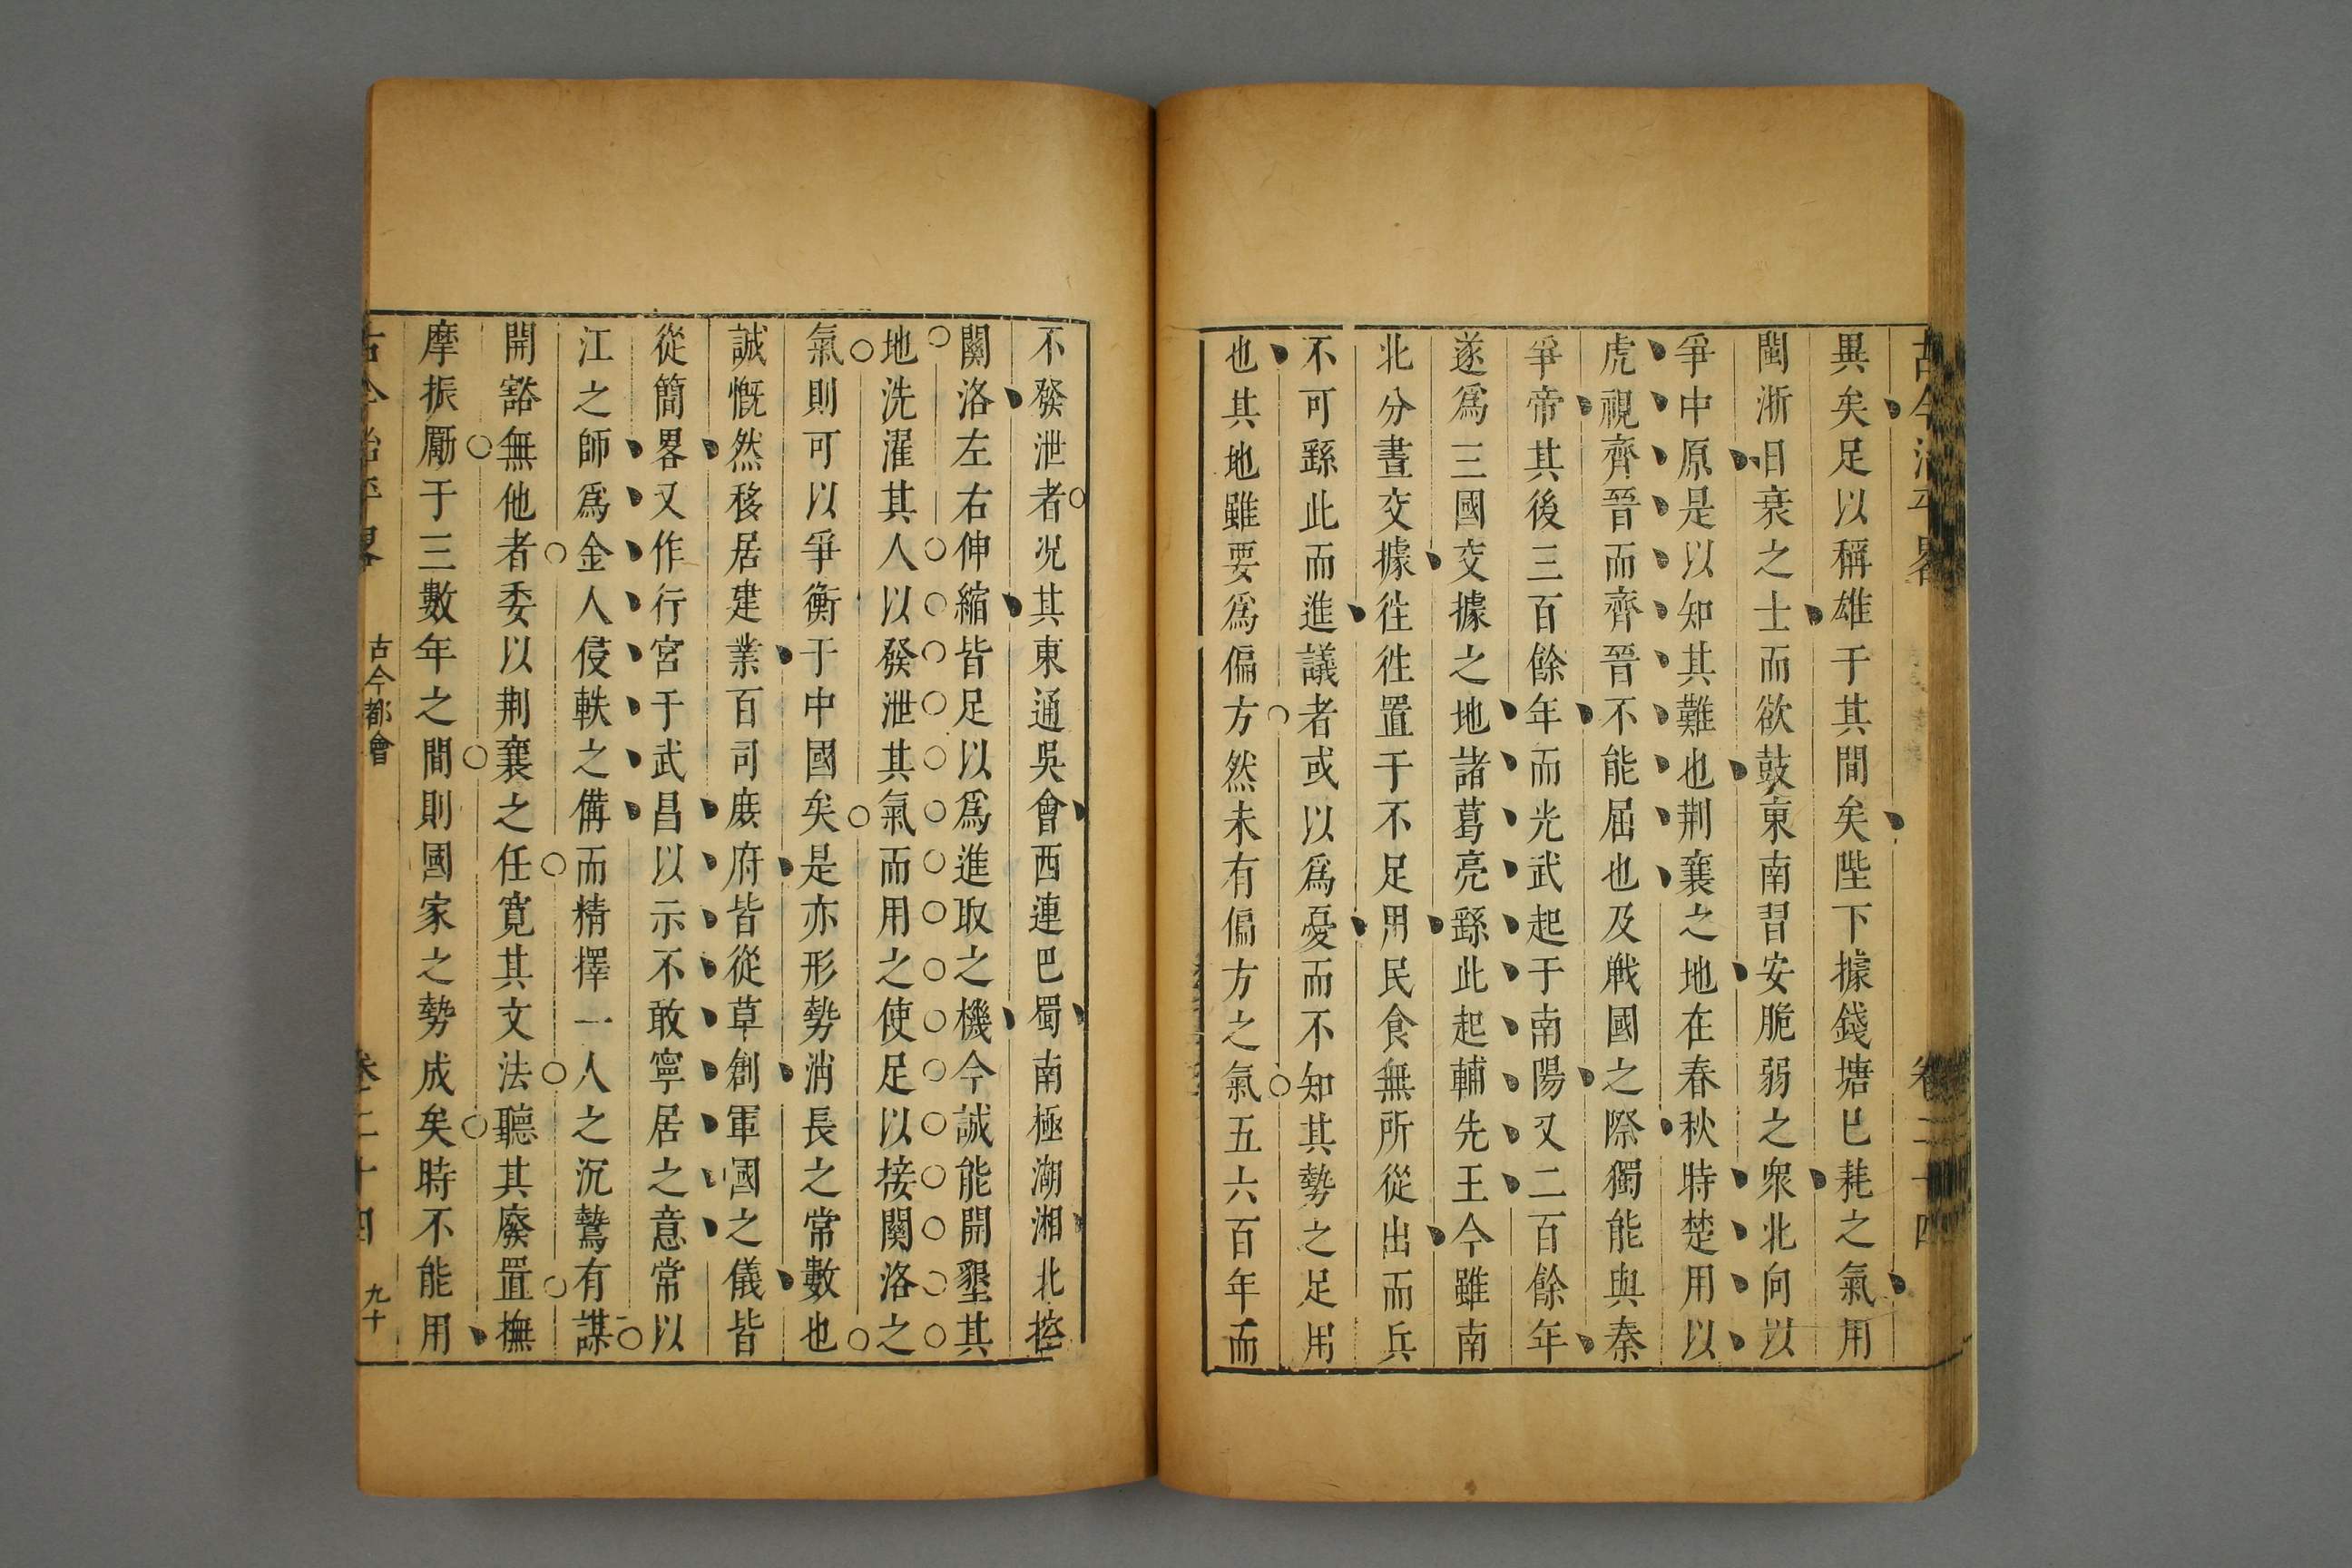 古今治平畧 卷二十四
異矣足以稱雄于其間矣陛下據錢塘已耗之氣用
閩浙日衰之士而欲鼓東南習安脆弱之衆北向以
爭中原是以知其難也荆襄之地在春秋時楚用以
虎視齊晉而齊晉不能屈也及戰國之際獨能與秦
爭帝其後三百餘年而光武起于南陽又二百餘年
遂爲三國交據之地諸葛亮繇此起輔先王今雖南
北分晝交據往往置于不足用民食無所從出而兵
不可繇此而進議者或以爲憂而不知其勢之足用
也其地雖要爲偏方然未有偏方之氣五六百年而
不發泄者况其東通吳會西連巴蜀南極湖湘北控
關洛左右伸縮皆足以爲進取之機今誠能開墾其
地洗濯其人以發泄其氣而用之使足以接關洛之
氣則可以爭衡于中國矣是亦形勢消長之常數也
誠慨然移居建業百司庶府皆從草創軍國之儀皆
從簡畧又作行宮于武昌以示不敢寧居之意常以
江之師爲金人侵軼之備而精擇一人之沉鷙有謀
開豁無他者委以荆襄之任寛其文法聽其廢置撫
摩振勵于三數年之間則國家之勢成矣時不能用
古今治平畧 古今都會 卷二十四 九十